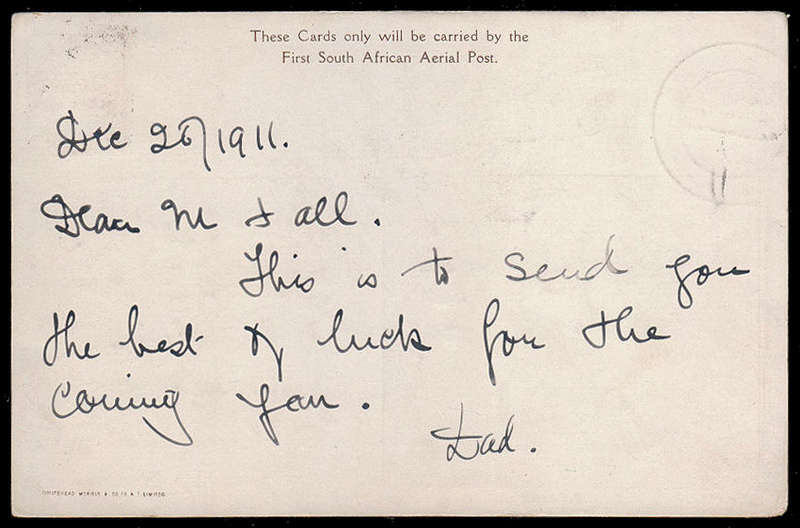 These Cards only will be carried by the
First South African Aerial Post.
Dec 26/1911.
Dear M & all.
This is to send you
the best of luck for the
coming year.
Dad.